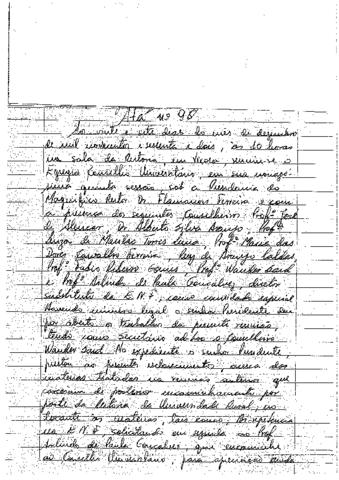 Ata nº 95
Ao vinte e sete dias do mês de dezembro
de mil novecentos e sessenta e dois, às 10 horas
na sala da Reitoria, em Viçosa, reuniu-se o
Egrégio Conselho Universitário, em sua nonagé-
sima quinta sessão sob a Presidência do
Magnífico Reitor Dr. Flamarion Ferreira e com
a presença dos seguintes Conselheiros: Profº José
de Alencar, Dr. Alberto Silva Araujo, Profª
Luiza de Torres Lima, Profª Maria das
Dores Carvalho Ferreira, de Araujo Caldas,
Profº Fábio Ribeiro Gomes, Profº Wander
e Profº Arlindo de Paula Gonçalves, diretor
substituto da E.N.F, como convidado especial
Havendo número legal o senhor Presidente deu
por aberto o trabalhos da presente reunião,
tendo como secretário ad hoc o Conselheiro
Wander No expediente o senhor Presidente,
prestou ao presente esclarecimentos, acerca das
matérias tratadas na reunião anterior que
careciam de posterior encaminhamento por
parte da Reitoria da Universidade Rural, no
tocante as matérias, tais como;
na E.N.F. solicitando em seguida ao Prof.
Arlindo de Paula Gonçalves, que encaminhe
ao Conselho Universitário, para apreciação ainda